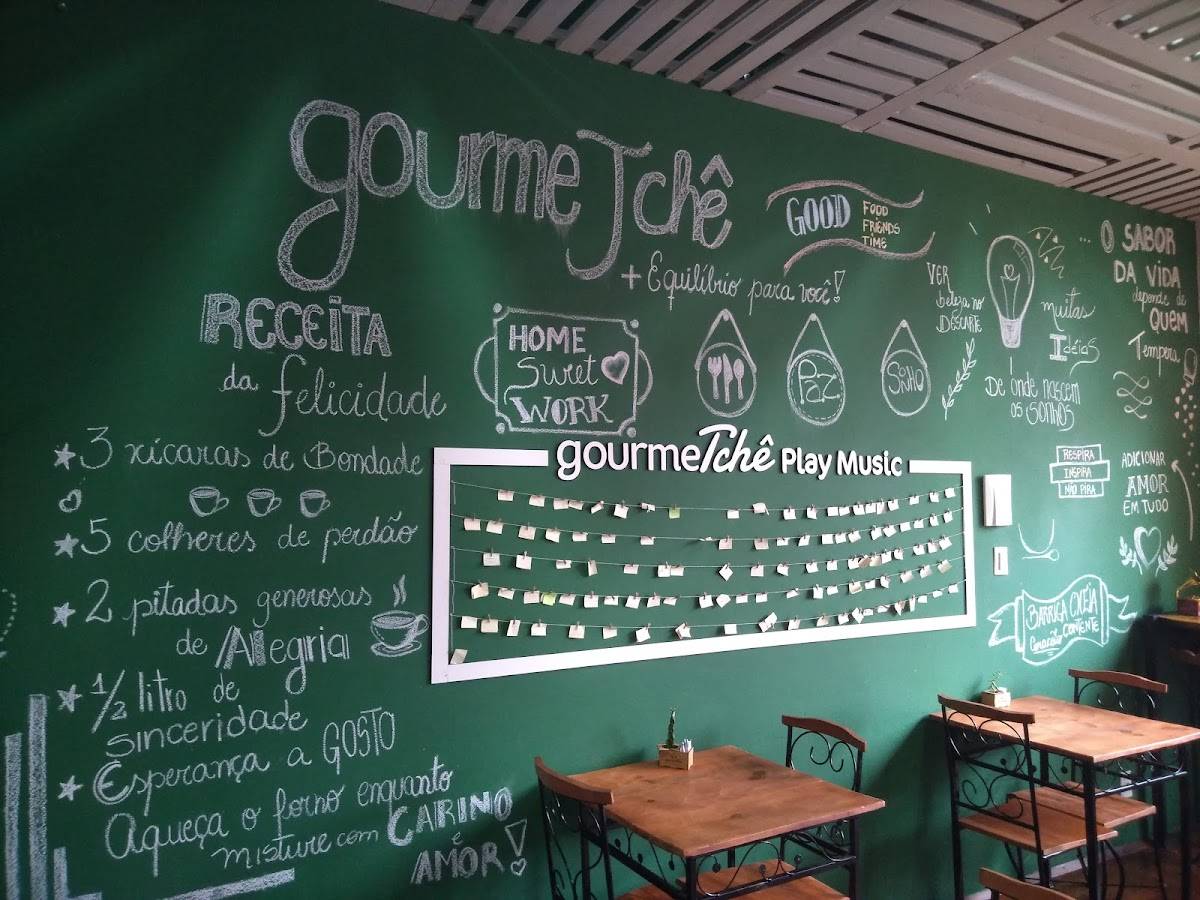 gourmeTchê
+ Equilíbrio para você!
GOOD
FOOD
FRIENDS
TIME
RECEITA
da felicidade
3 xícaras de Bondade
5 colheres de perdão
2 pitadas generosas
de Alegria
1/2 litro de
sinceridade
Esperança a GOSTO
Aqueça o forno enquanto
misture com CARINO
é
AMOR!
HOME
Sweet
WORK
PAZ
SONHO
gourmeTchê Play Music
VER
beleza no
DESCARTE
muitas
Idéias
De onde nascem
os SONHOS
... O SABOR
DA VIDA
depende de
QUEM
Tempera
RESPIRA
INSPIRA
NÃO PIRA
ADICIONAR
AMOR
EM TUDO
BARRIGA CHEIA
Coração CONTENTE